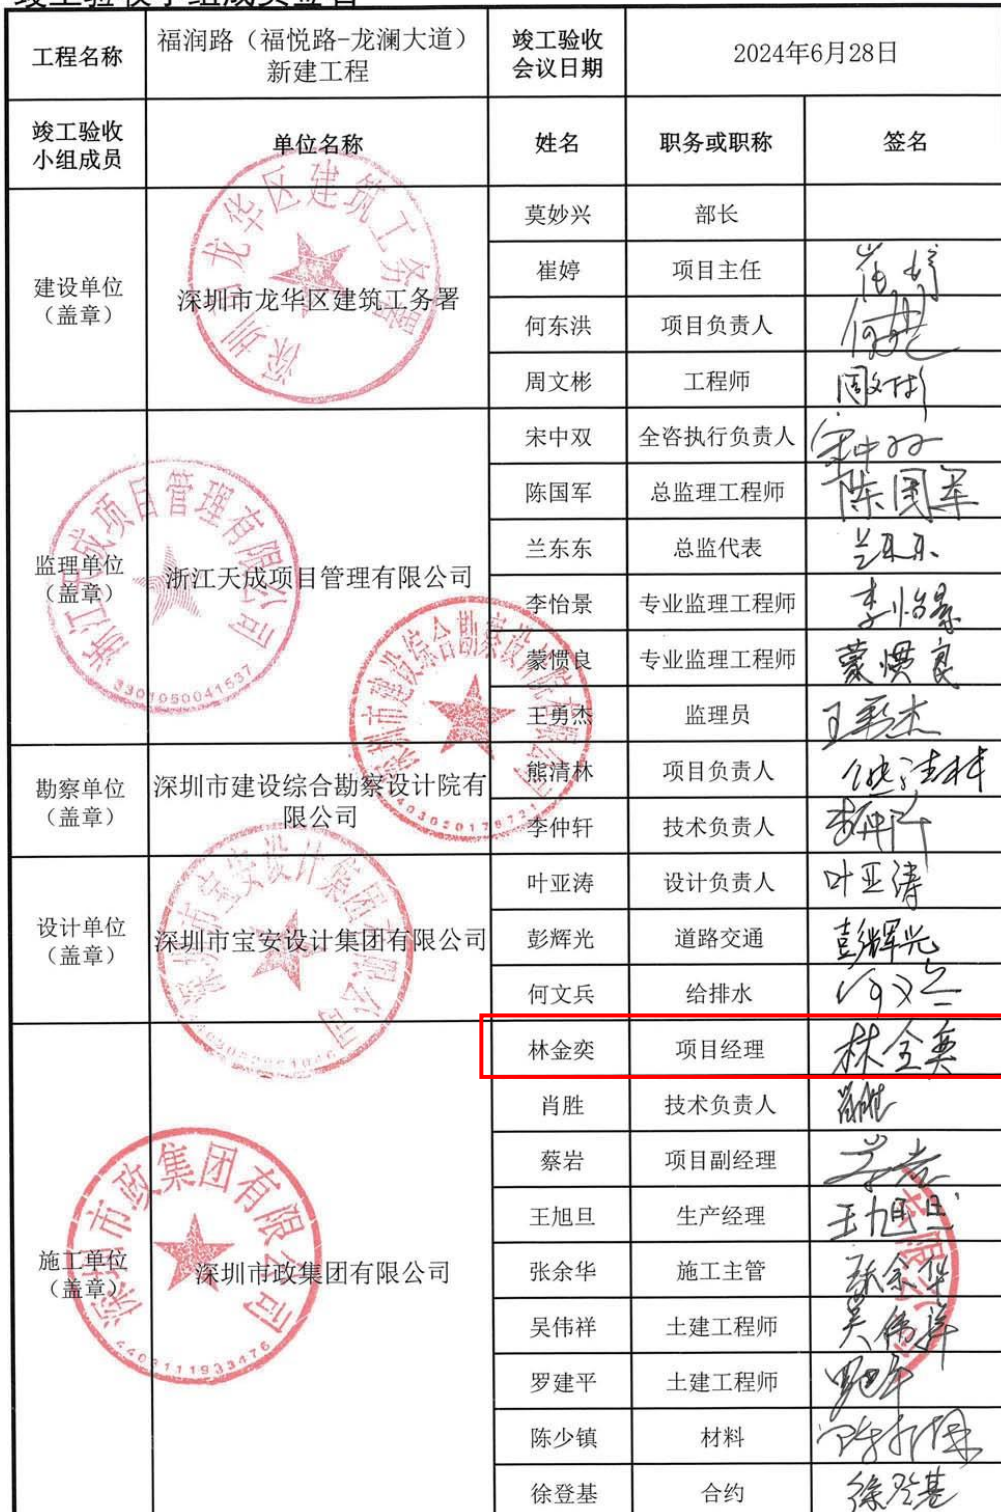 工程名称 福润路（福悦路-龙澜大道）新建工程 竣工验收会议日期 2024年6月28日
竣工验收小组成员 单位名称 姓名 职务或职称 签名
建设单位（盖章） 深圳市龙华区建筑工务署
莫妙兴 部长
崔婷 项目主任 崔婷
何东洪 项目负责人
周文彬 工程师 周文彬
监理单位（盖章） 浙江天成项目管理有限公司
宋中双 全咨执行负责人 宋中双
陈国军 总监理工程师 陈国军
兰东东 总监代表 兰东东
李怡景 专业监理工程师 李怡景
蒙惯良 专业监理工程师 蒙惯良
王勇杰 监理员 王勇杰
勘察单位（盖章） 深圳市建设综合勘察设计院有限公司
熊清林 项目负责人 熊清林
李仲轩 技术负责人
设计单位（盖章） 深圳市宝安设计集团有限公司
叶亚涛 设计负责人 叶亚涛
彭辉光 道路交通 彭辉光
何文兵 给排水 何文兵
施工单位（盖章） 深圳市政集团有限公司
林金奕 项目经理 林金奕
肖胜 技术负责人 肖胜
蔡岩 项目副经理
王旭旦 生产经理 王旭旦
张余华 施工主管 张余华
吴伟祥 土建工程师 吴伟祥
罗建平 土建工程师
陈少镇 材料
徐登基 合约 徐登基
深圳市龙华区建筑工务署
浙江天成项目管理有限公司
3301050041537
深圳市建设综合勘察设计院有限公司
深圳市宝安设计集团有限公司
深圳市政集团有限公司
4403111933476
有限公司